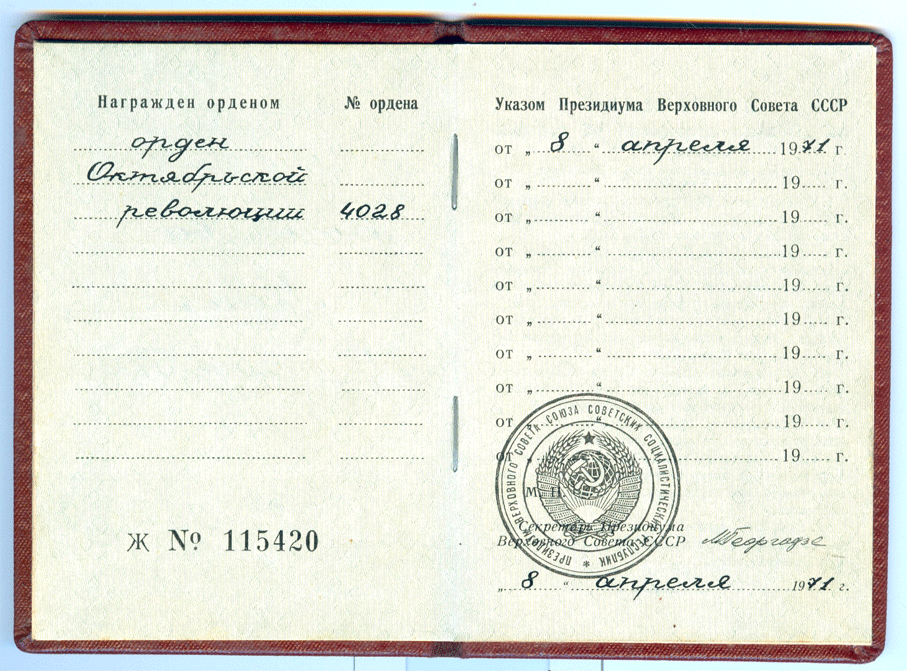 Награжден орденом
№ ордена
орден
Октябрьской
революции 4028
Ж № 115420
Указом Президиума Верховного Совета СССР
от „ 8 “ апреля 1971 г.
от „ “ 19 г.
от „ “ 19 г.
от „ “ 19 г.
от „ “ 19 г.
от „ “ 19 г.
от „ “ 19 г.
от „ “ 19 г.
от „ “ 19 г.
от „ 19 г.
ПРЕЗИДИУМ ВЕРХОВНОГО СОВЕТА СОЮЗА СОВЕТСКИХ СОЦИАЛИСТИЧЕСКИХ РЕСПУБЛИК *
М. П.
Секретарь Президиума
Верховного Совета СССР МГеоргадзе
„ 8 “ апреля 1971 г.